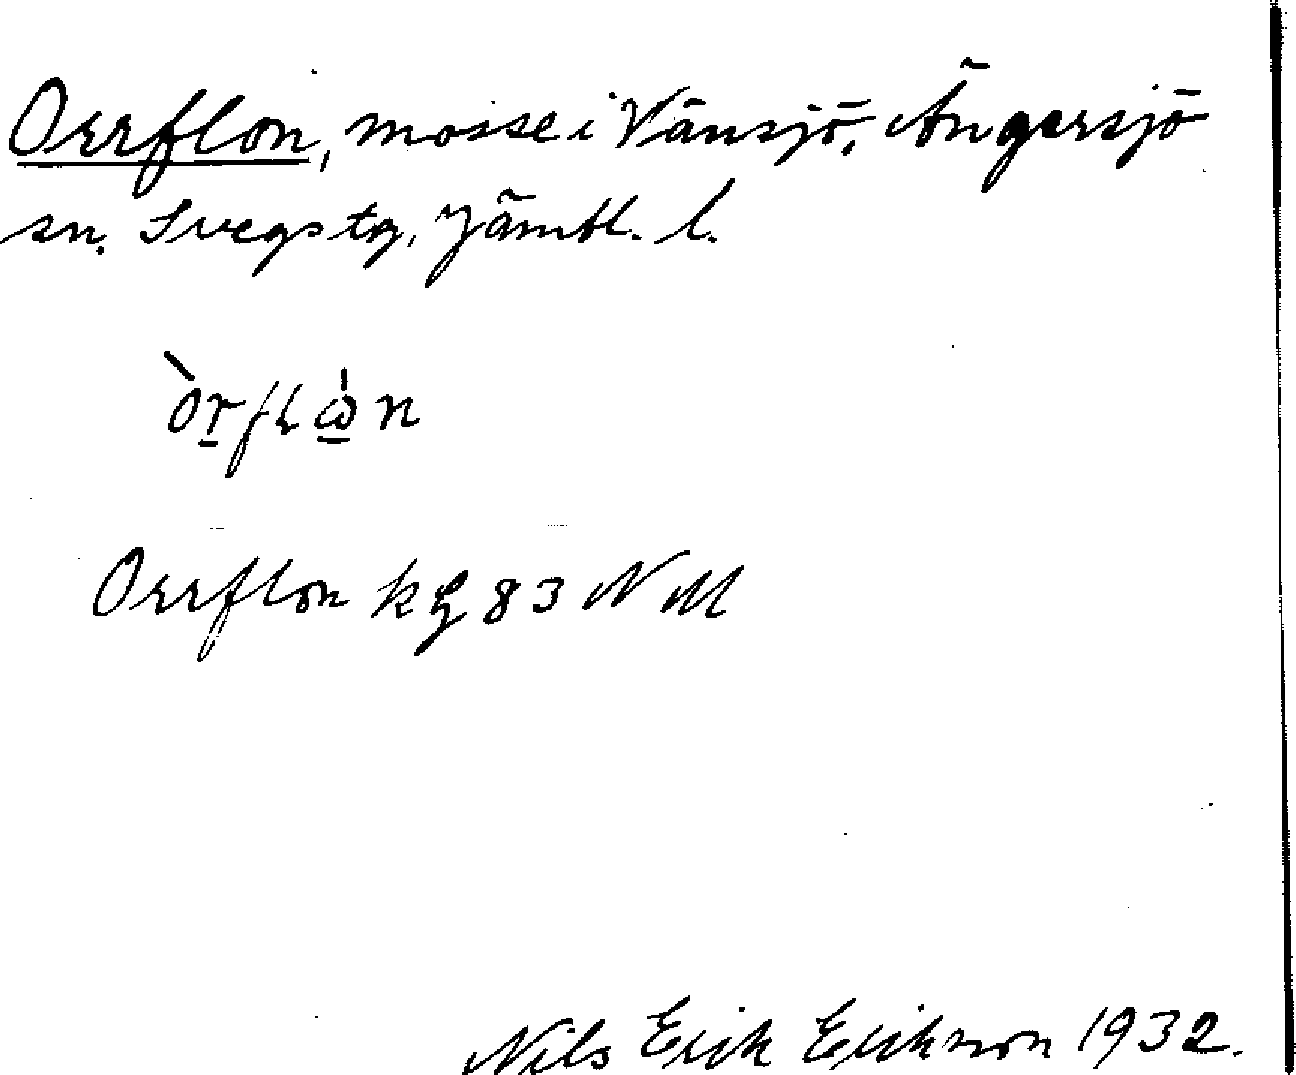 Orrflon, mosse i Vänsjö, Ängersjö
sn. Svegs tg, Jämtl. l.
Orrflon kg 83 NM
Nils Erik Erikson 1932.